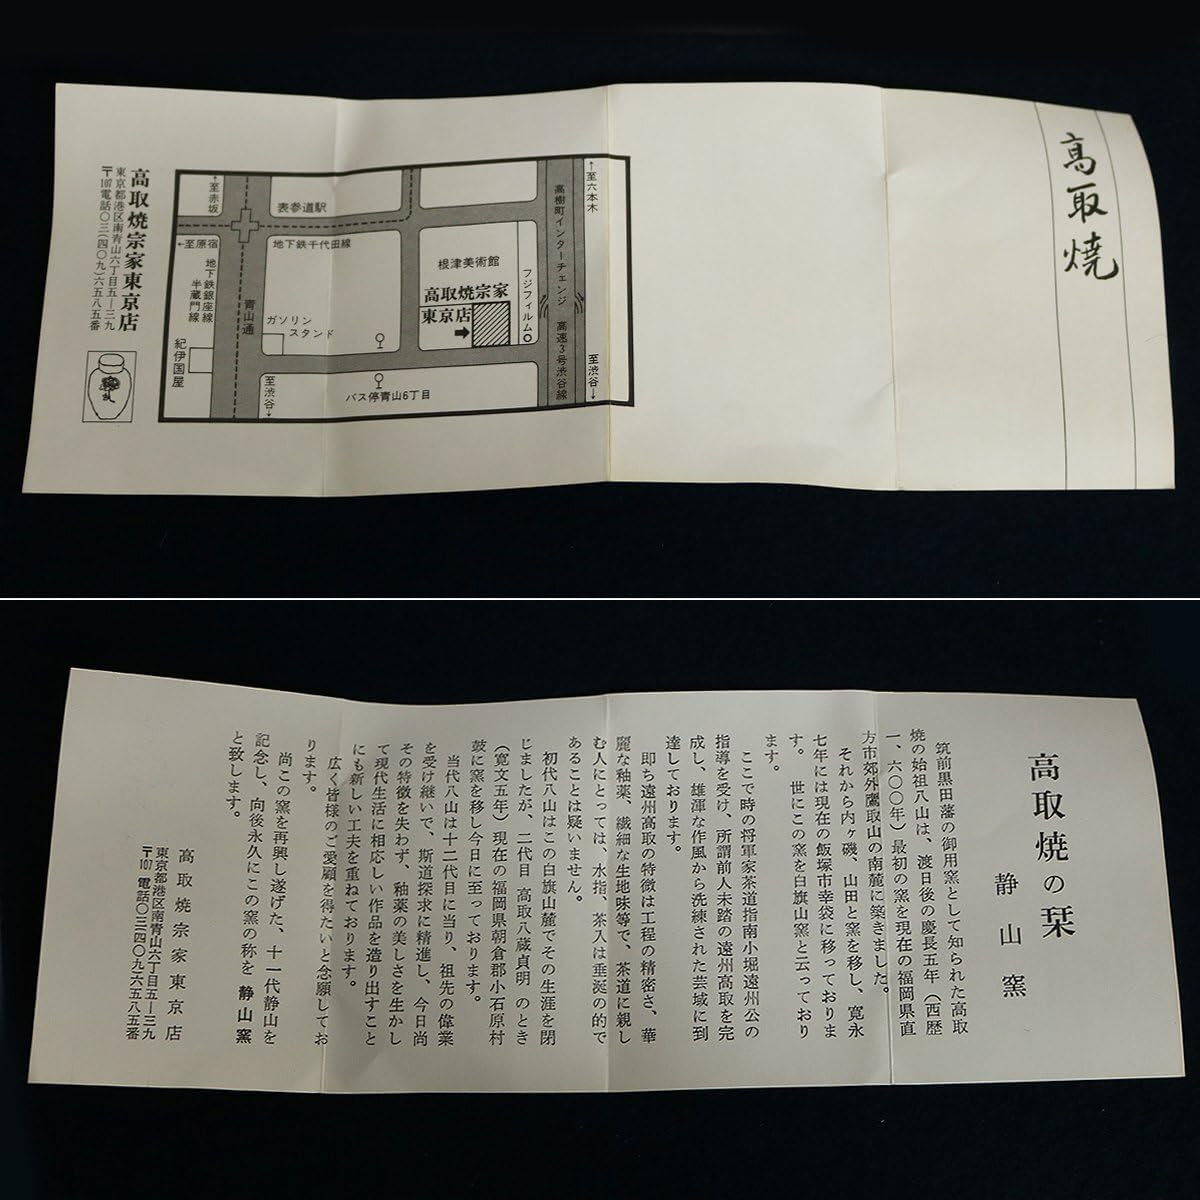 高取焼
↑至六本木
高樹町インターチェンジ
高速3号渋谷線
至渋谷↓
フジフィルム
根津美術館
高取焼宗家
東京店
表参道駅
地下鉄千代田線
ガソリン
スタンド
バス停青山6丁目
↑至赤坂
←至原宿
地下鉄銀座線
半蔵門線
青山通
紀伊国屋
至渋谷↓
高取焼宗家東京店
東京都港区南青山六丁目五ー三九
〒107電話〇三(四〇九)六五八五番
高取焼の栞
静山窯
筑前黒田藩の御用窯として知られた高取
焼の始祖八山は、渡日後の慶長五年(西歴
一、六〇〇年)最初の窯を現在の福岡県直
方市郊外鷹取山の南麓に築きました。
それから内ヶ磯、山田と窯を移し、寛永
七年には現在の飯塚市幸袋に移っておりま
す。 世にこの窯を白旗山窯と云っており
ます。
ここで時の将軍家茶道指南小堀遠州公の
指導を受け、所謂前人未踏の遠州高取を完
成し、雄渾な作風から洗練された芸域に到
達しております。
即ち遠州高取の特徴は工程の精密さ、華
麗な釉薬、繊細な生地味等で、茶道に親し
む人にとっては、水指、茶入は垂涎の的で
あることは疑いません。
初代八山はこの白旗山麓でその生涯を閉
じましたが、二代目 高取八蔵貞明 のとき
(寛文五年)現在の福岡県朝倉郡小石原村
鼓に窯を移し今日に至っております。
当代八山は十二代目に当り、祖先の偉業
を受け継いで、斯道探求に精進し、今日尚
その特徴を失わず、釉薬の美しさを生かし
て現代生活に相応しい作品を造り出すこと
にも新しい工夫を重ねております。
広く皆様のご愛顧を得たいと念願してお
ります。
尚この窯を再興し遂げた、十一代静山を
記念し、向後永久にこの窯の称を 静山窯
と致します。
高取焼宗家東京店
東京都港区南青山六丁目五ー三九
〒107 電話〇三四〇九六五八五番